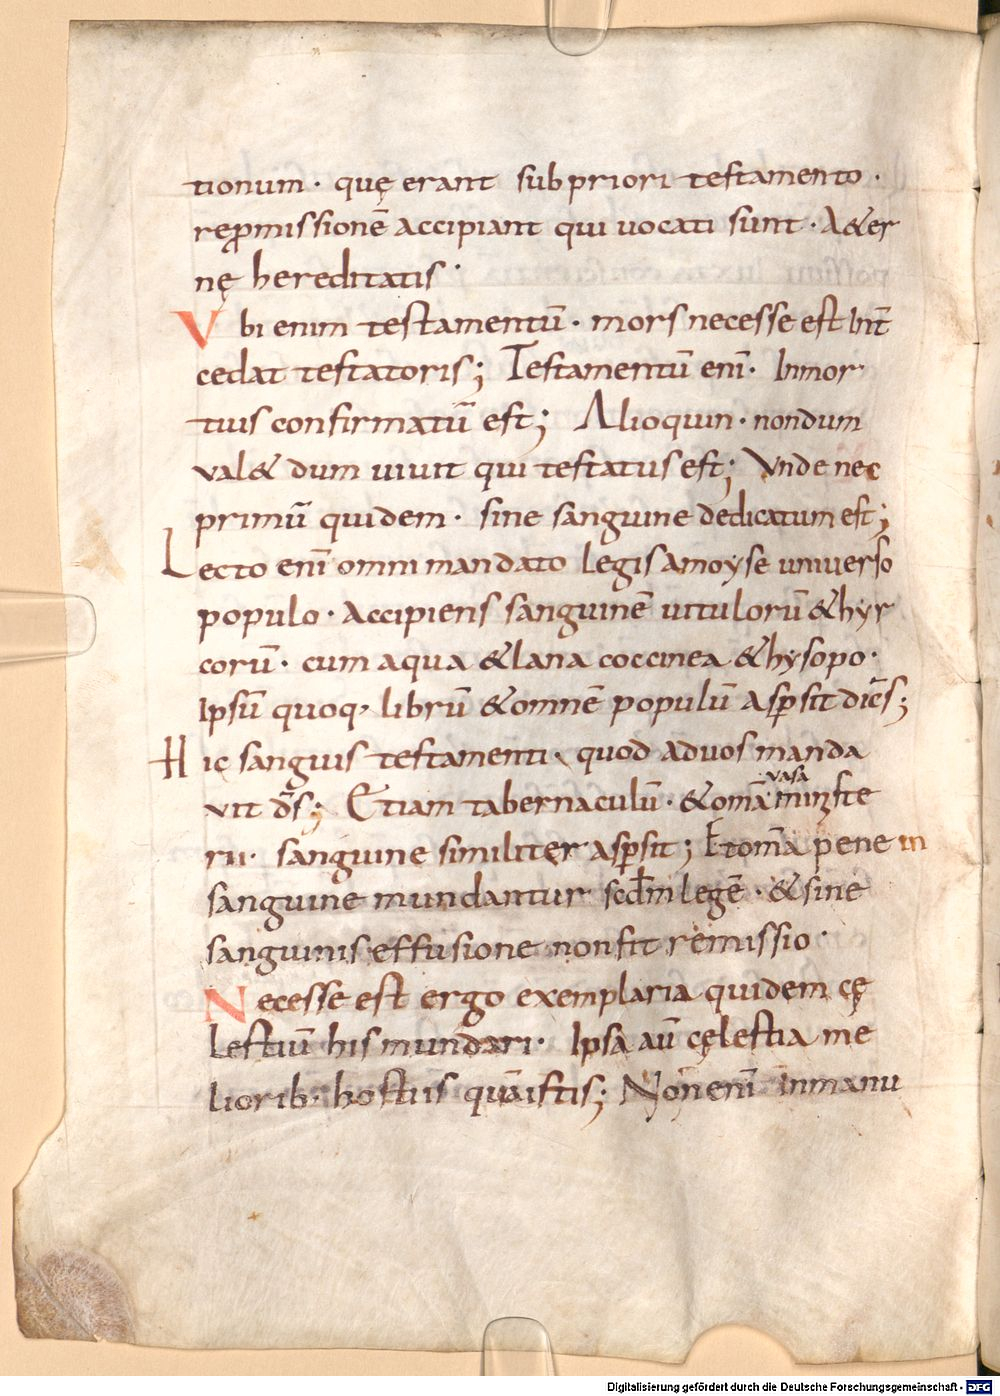 tionum · quę erant sub priori testamento ·
rep̱missionē accipiant qui uocati sunt · A&er
nę hereditatis ·
V bi enim testamentū · mors necesse est Int̄
cedat testatoris ; Testamentū enī · Inmor
tuis confirmatū est ; Alioquin · nondum
val& dum uiuit qui testatus est ; Vnde nec
primū quidem · sine sanguine dedicatum est ;
Lecto enī omni mandato legis amoyse uniuerso
populo · Accipiens sanguinē uitulorū &hyr
corū · cum aqua &lana coccinea &hysopo ·
Ipsū quoq, librū &omnē populū Asp̱sit dic̄s ;
Hic sanguis testamenti · quod aduos manda
vit d̄s ; Etiam tabernaculū · &om̄a vasa minyste
rii · sanguine similiter asp̱sit ; Etom̄a pene in
sanguine mundantur scd̄m legē · &sine
sanguinis effusione non fit remissio ·
Necesse est ergo exemplaria quidem cę
lestiū his mundari · Ipsa aū cęlestia me
liorib · hostiis quā istis ; Non enī inmanu
Digitalisierung gefördert durch die Deutsche Forschungsgemeinschaft - DFG